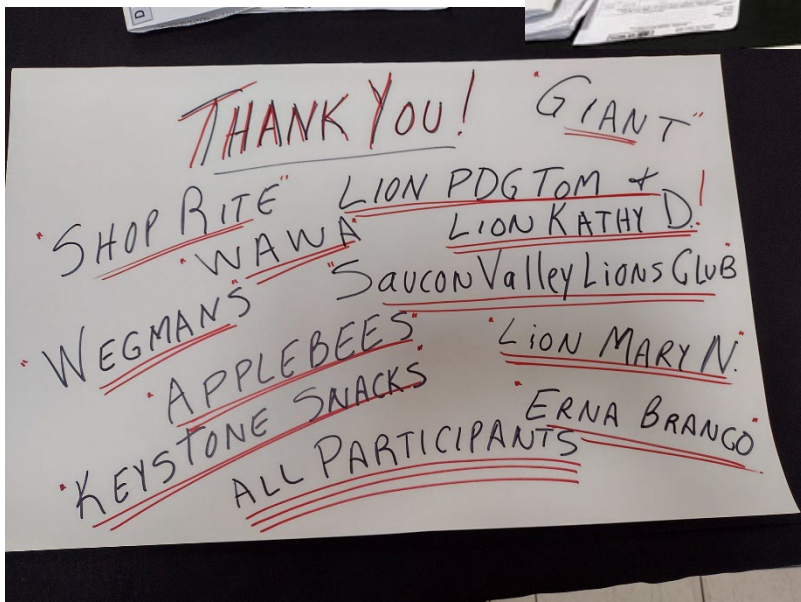 THANK YOU!
"GIANT"
"SHOP RITE"
LION PDG TOM &
LION KATHY D.!
"WAWA"
"SAUCON Valley LIONS CLUB"
"WEGMANS"
"APPLEBEES"
"LiON MARY N."
"KEYSTONE SNACKS"
"ERNA BRANCO"
ALL PARTICIPANTS